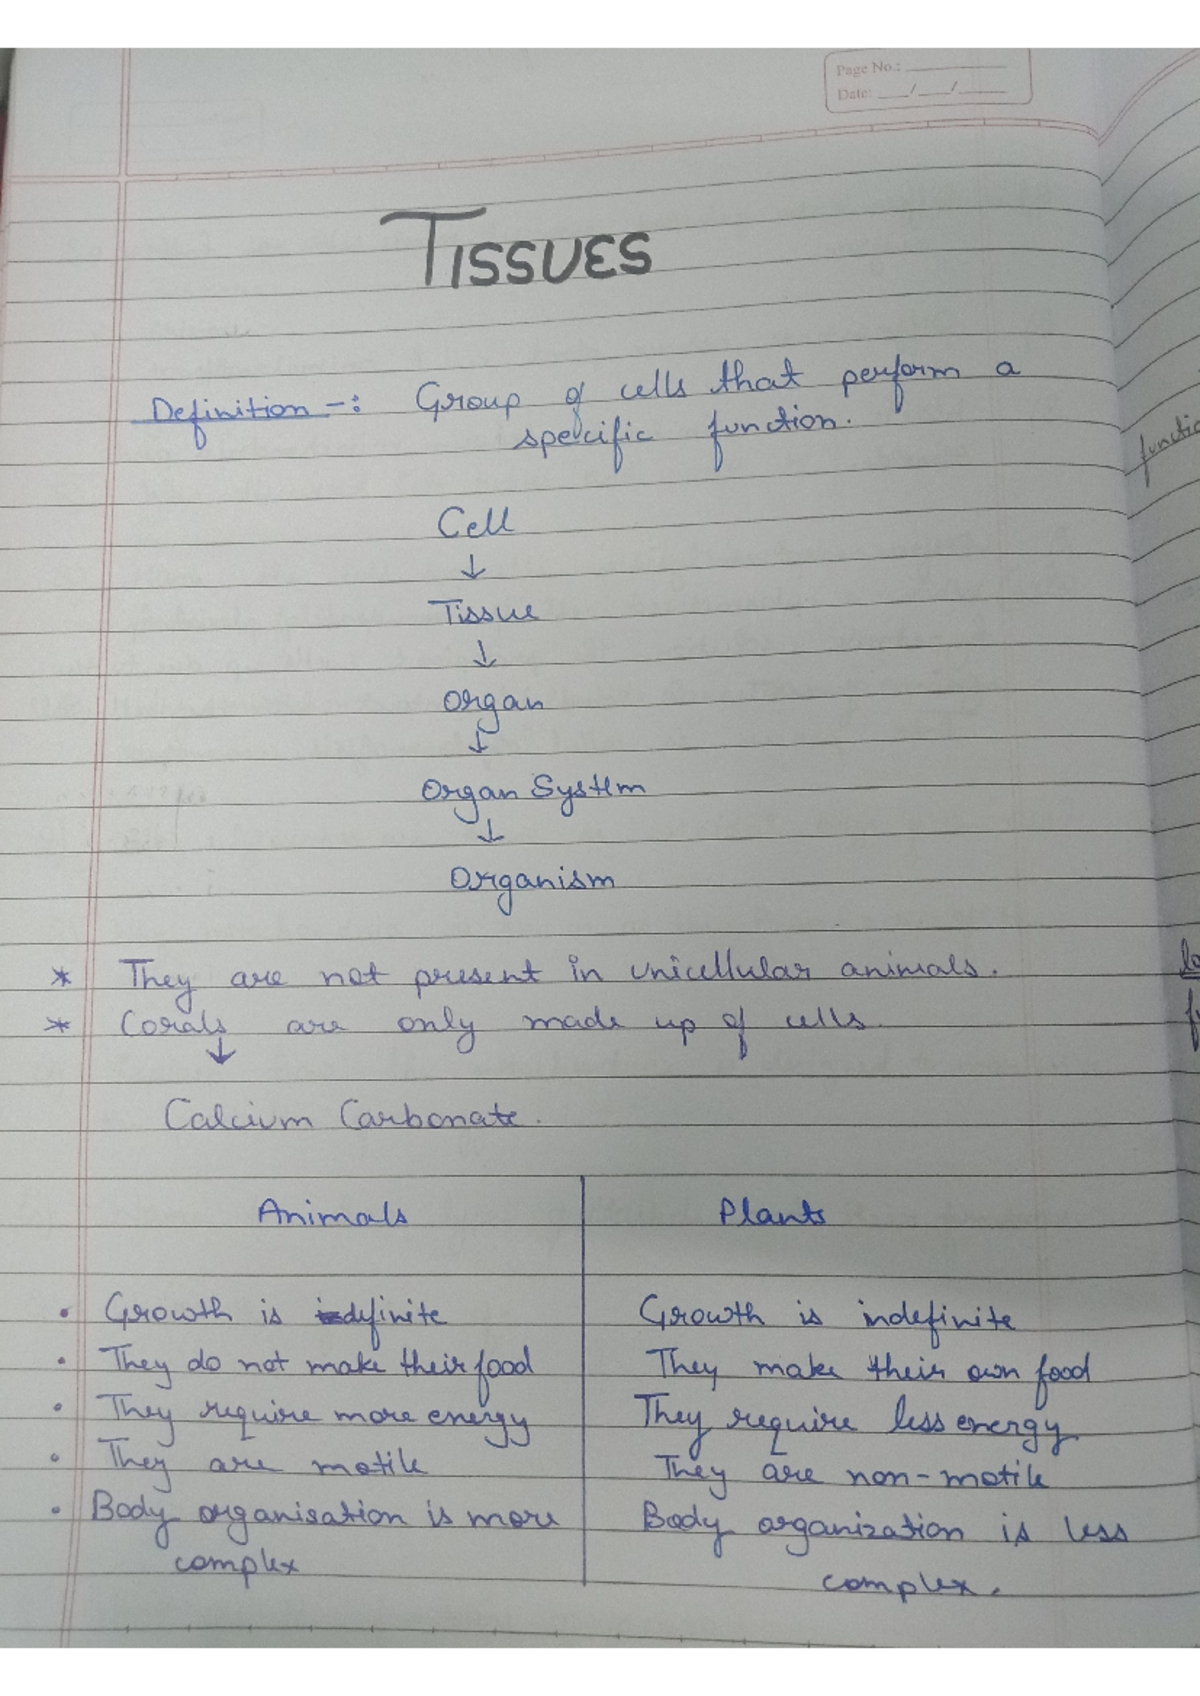 Page No.:
Date: / /
TISSUES
Definition -: Group of cells that perform a
specific function.
functio
Cell
↓
Tissue
↓
Organ
↓
Organ System
↓
Organism
* They are not present in unicellular animals.
* Corals are only made up of cells
↓
Calcium Carbonate.
Animals Plants
• Growth is definite Growth is indefinite
• They do not make their food They make their own food
• They require more energy They require less energy
• They are motile They are non-motile
• Body organisation is more Body organization is less
complex complex.